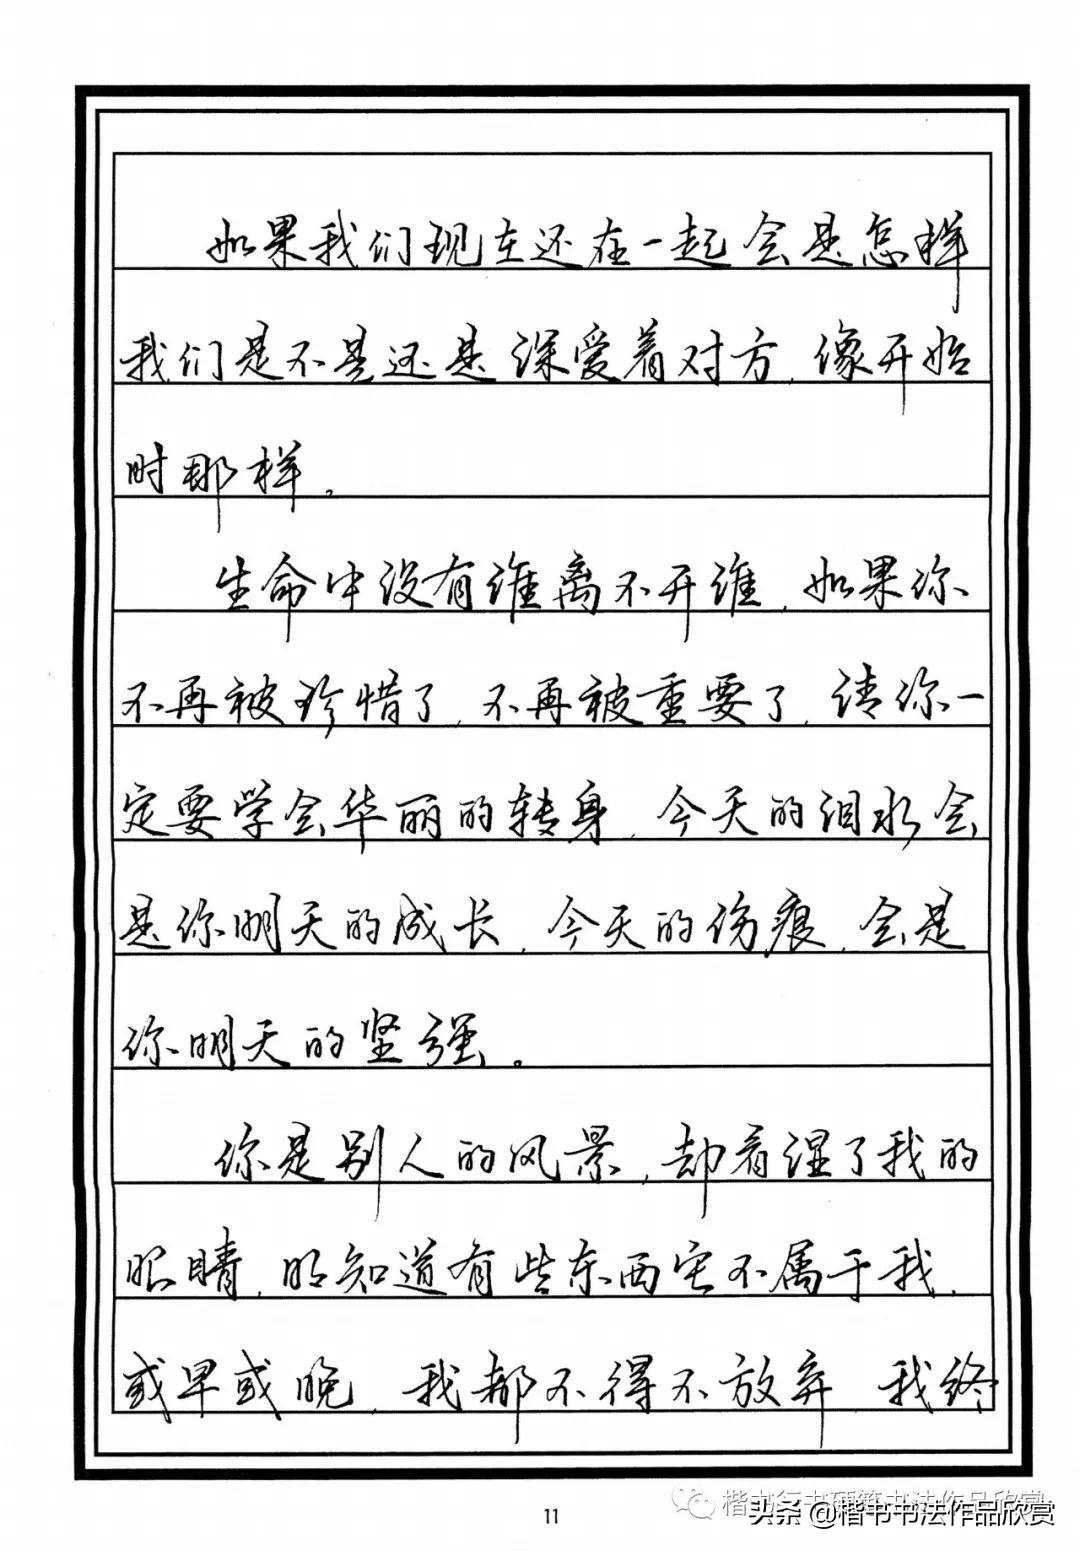 如果我们现在还在一起会是怎样
我们是不是还是深爱着对方,像开始
时那样。
生命中没有谁离不开谁,如果你
不再被珍惜了,不再被重要了,请你一
定要学会华丽的转身,今天的泪水会
是你明天的成长,今天的伤痕,会是
你明天的坚强。
你是别人的风景,却看湿了我的
眼睛,明知道有些东西它不属于我,
或早或晚,我都不得不放弃 我终
11
楷书行书硬笔书法作品欣赏
头条@楷书书法作品欣赏